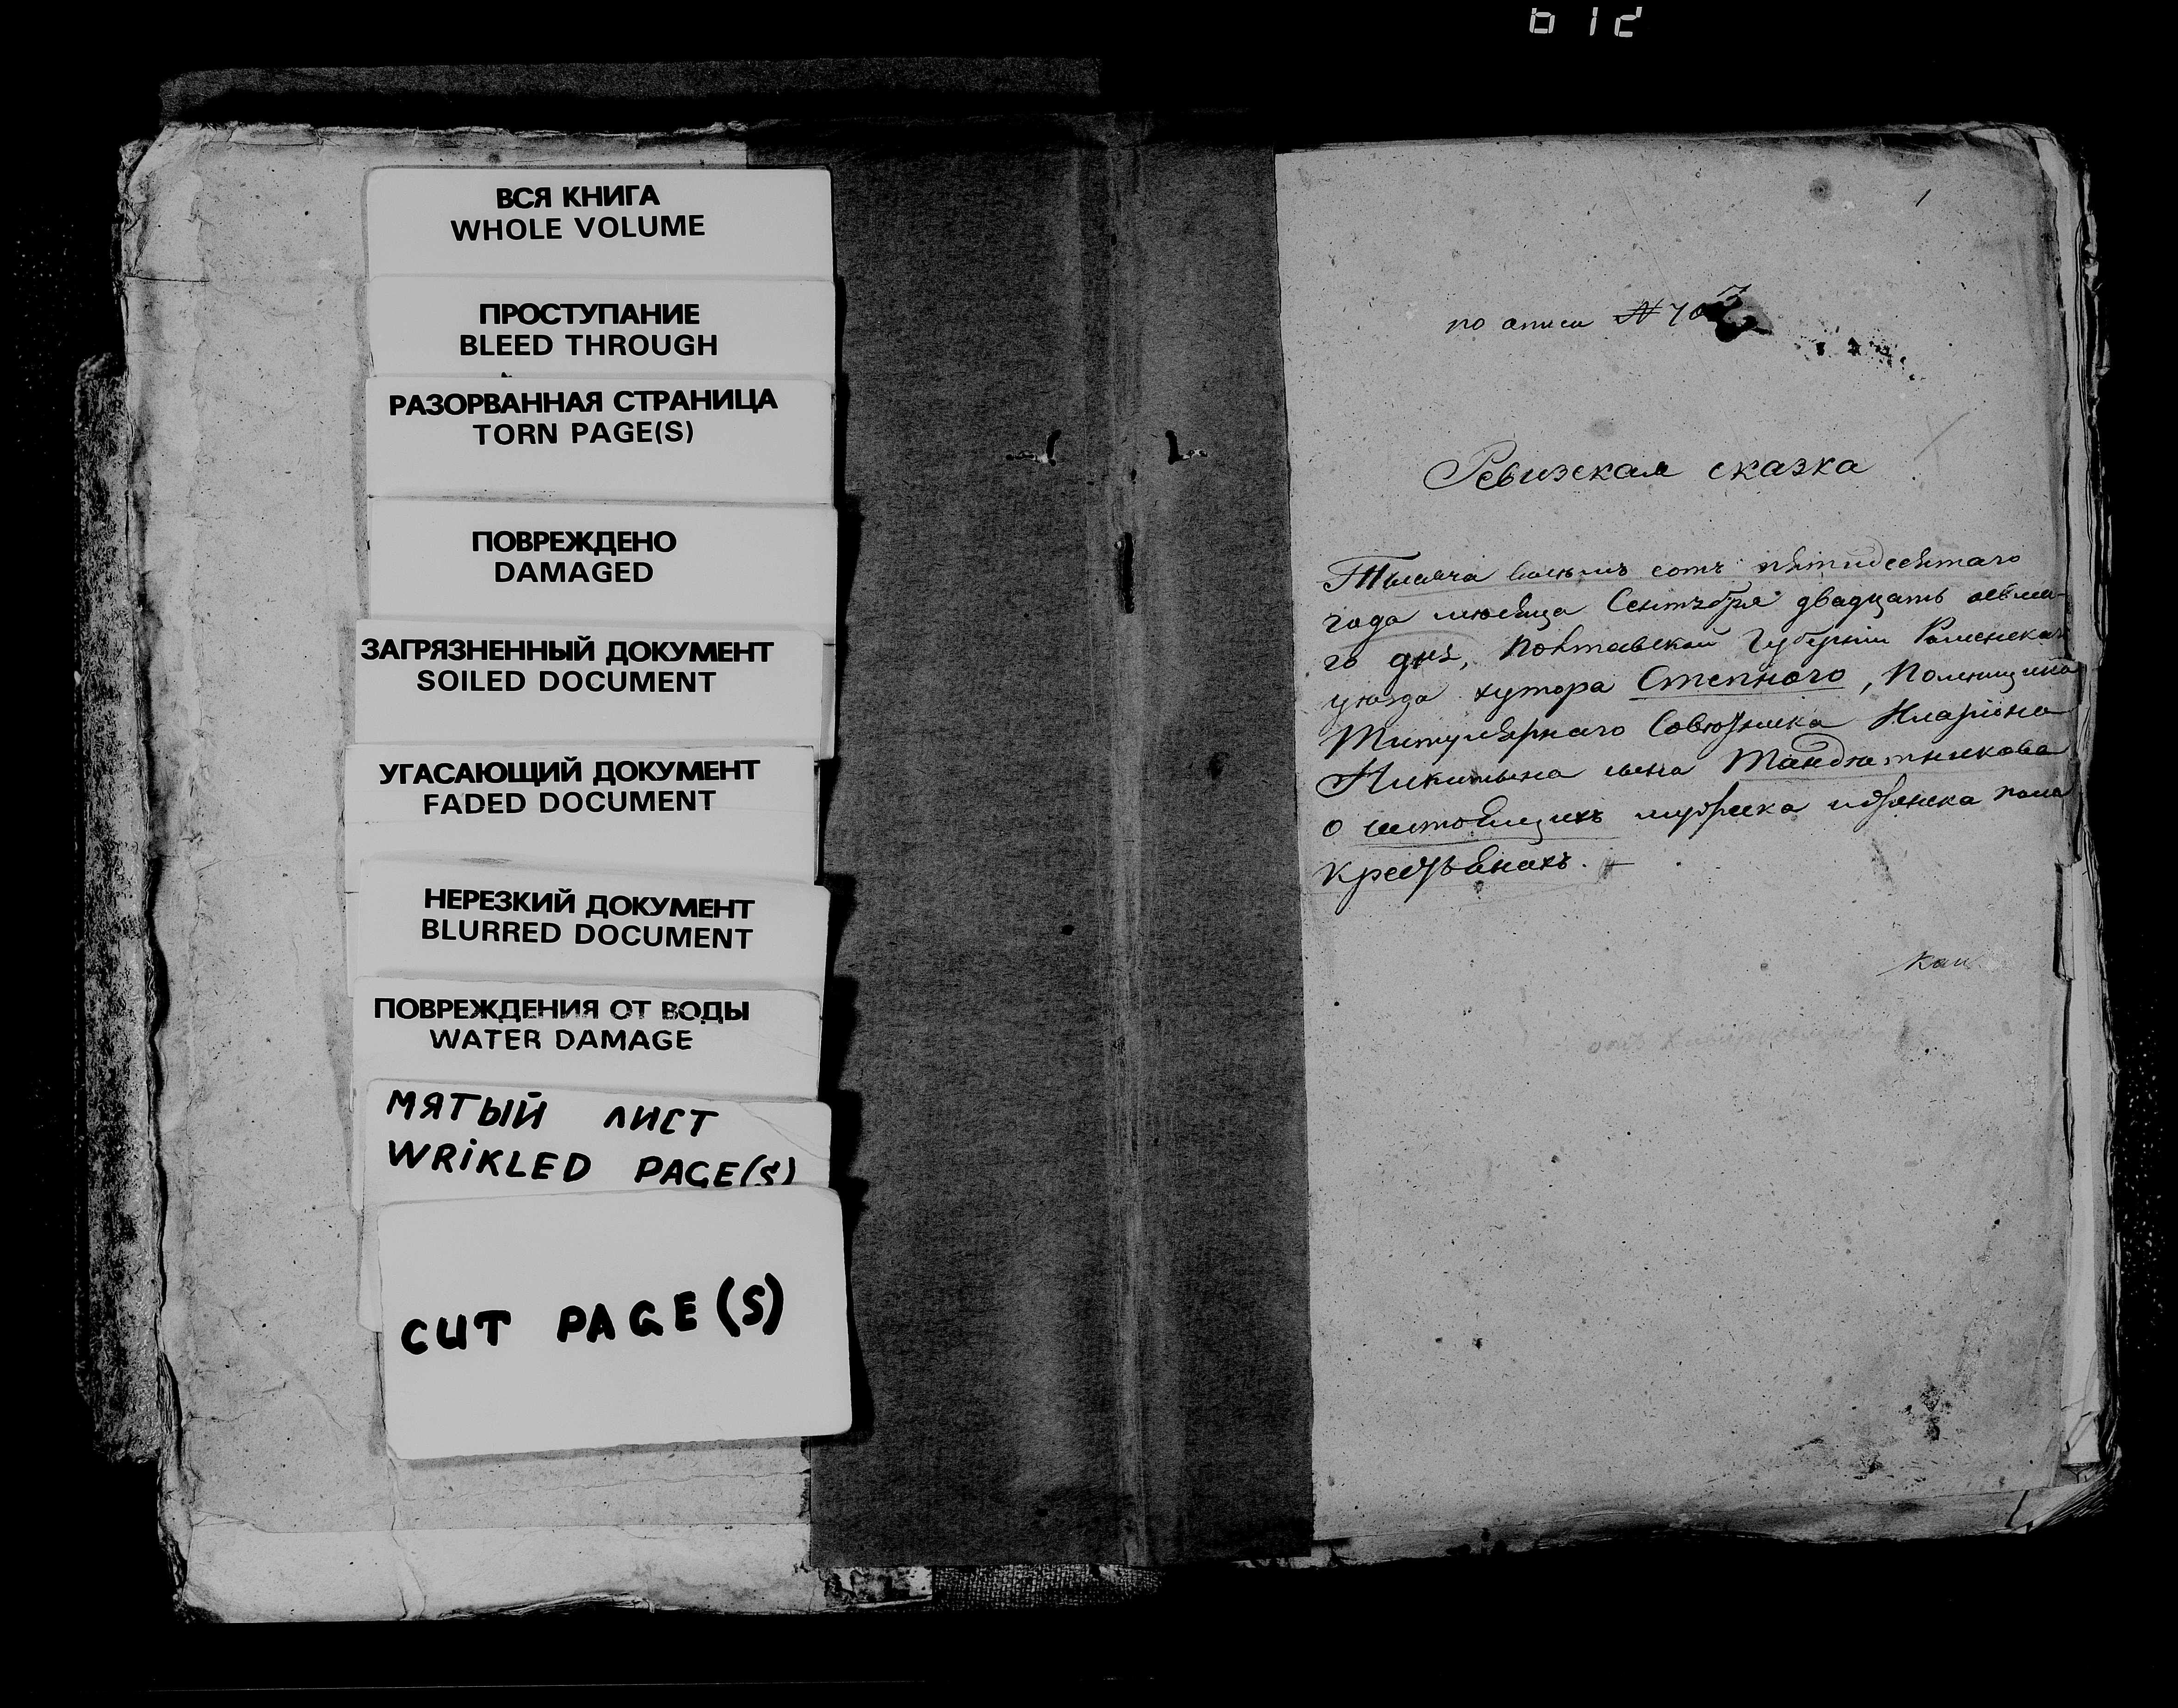 ВСЯ КНИГА
WHOLE VOLUME
ПРОСТУПАНИЕ
BLEED THROUGH
РАЗОРВАННАЯ СТРАНИЦА
TORN PAGE(S)
ПОВРЕЖДЕНО
DAMAGED
ЗАГРЯЗНЕННЫЙ ДОКУМЕНТ
SOILED DOCUMENT
УГАСАЮЩИЙ ДОКУМЕНТ
FADED DOCUMENT
НЕРЕЗКИЙ ДОКУМЕНТ
BLURRED DOCUMENT
ПОВРЕЖДЕНИЯ ОТ ВОДЫ
WATER DAMAGE
МЯТЫЙ ЛИСТ
WRIKLED PAGE(S)
CUT PAGE(S)
1
по описи №
Ревизская сказка
Тысяча восемь сотъ пятидесятаго
года мѣсяца Сентября двадцать осьма-
го дня, Полтавской Губерніи Роменскаго
уѣзда хутора Степного, Помещика
Титулярнаго Совѣтника Иларіона
Никитина сына
о состоящихъ мужеска и женска пола
крестьянахъ.